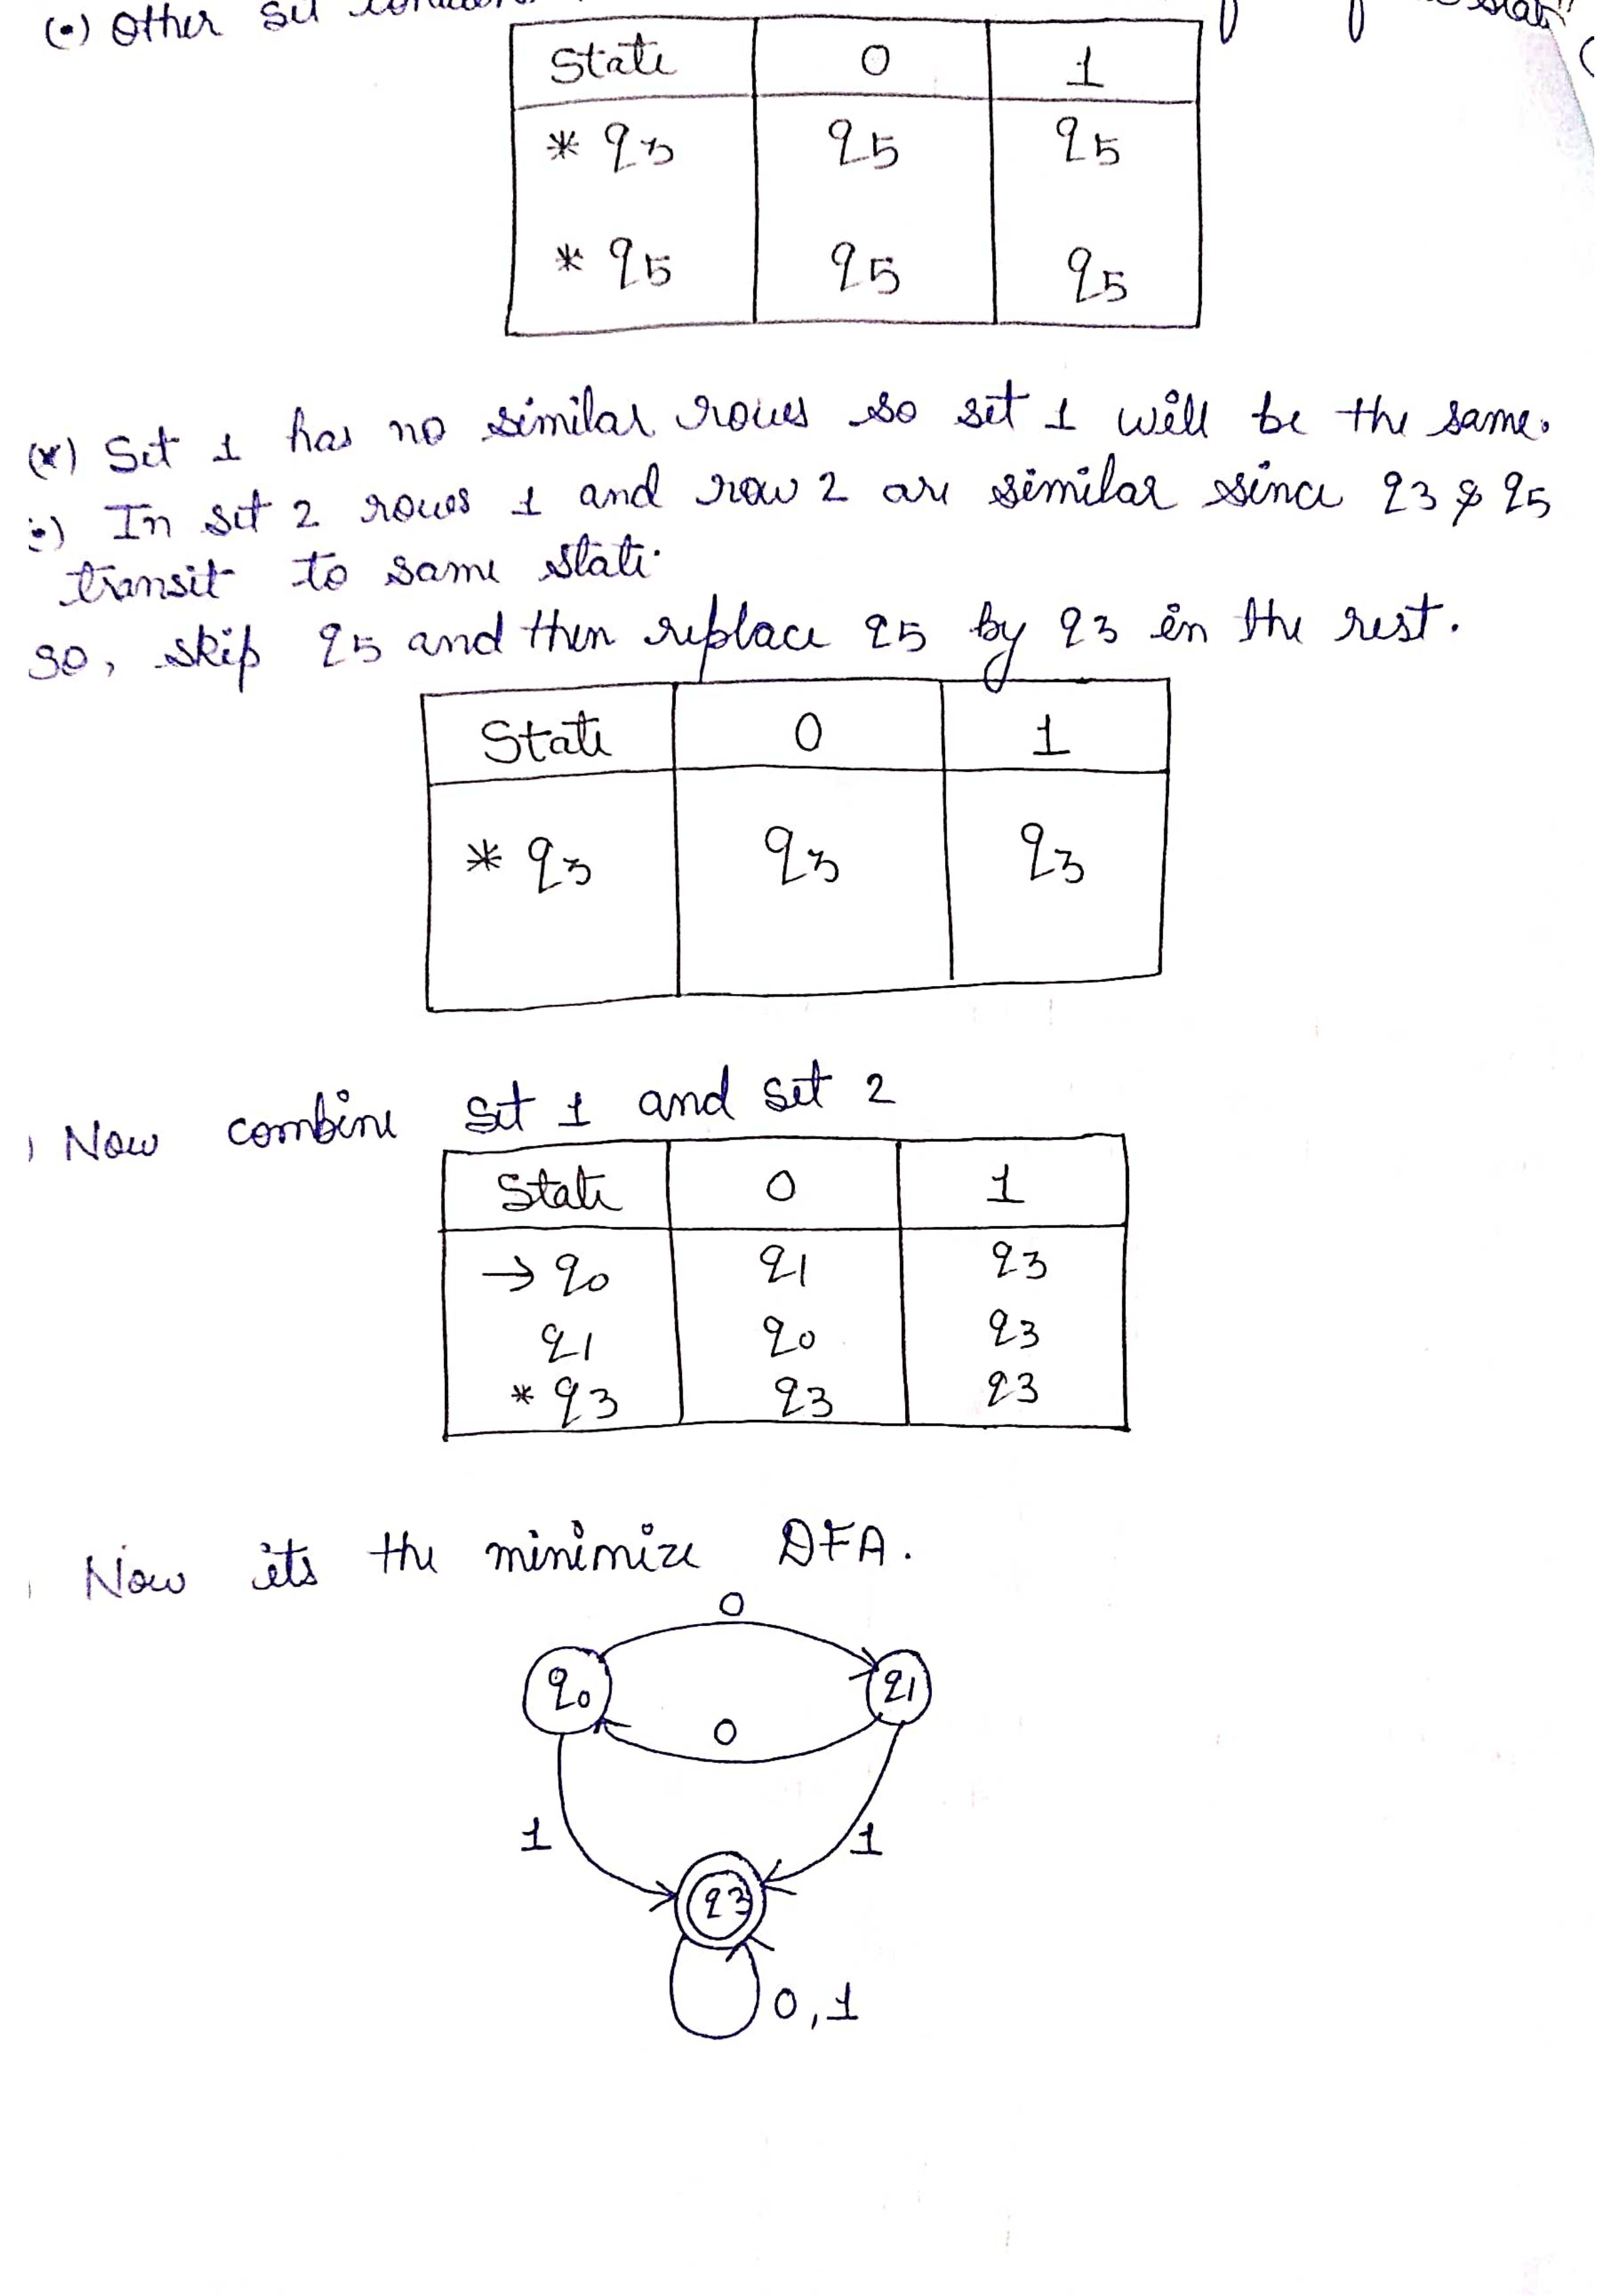 (•) Other set
State 0 1
* q3 q5 q5
* q5 q5 q5
(x) Set 1 has no similar rows so set 1 will be the same.
:•) In set 2 rows 1 and row 2 are similar since q3 & q5
transit to same state.
so, skip q5 and then replace q5 by q3 in the rest.
State 0 1
* q3 q3 q3
) Now combine set 1 and set 2
State 0 1
→ q0 q1 q3
q1 q0 q3
* q3 q3 q3
Now its the minimize DFA.
0
q0 q1
0
1 1
q3
0,1